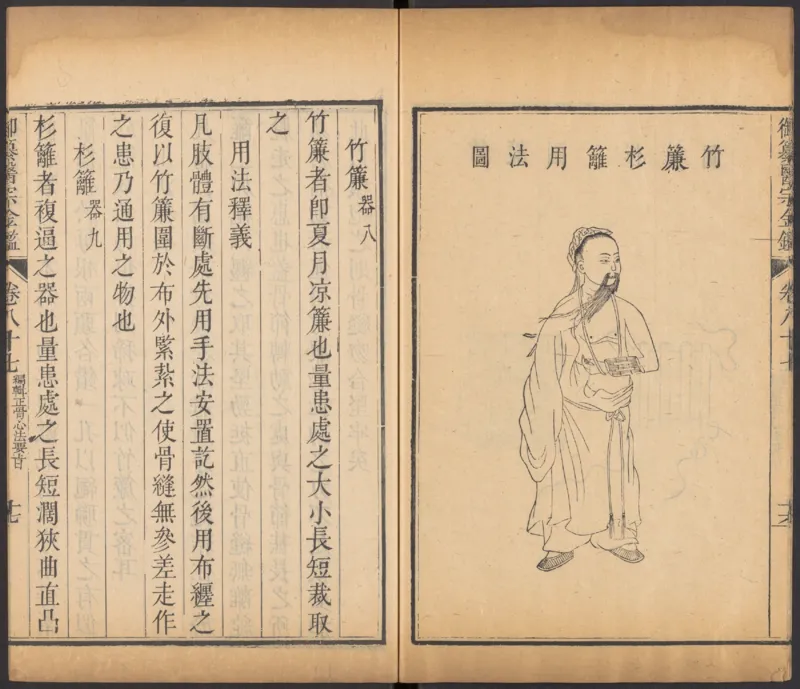 御纂醫宗金鑑 卷八十七
竹簾杉籬用法圖
竹簾 器八
竹簾者卽夏月凉簾也量患處之大小長短裁取
之
用法釋義
凡肢體有斷處先用手法安置訖然後用布纒之
復以竹簾圍於布外緊紮之使骨縫無參差走作
之患乃通用之物也
杉籬 器九
杉籬者複逼之器也量患處之長短濶狹曲直凸
御纂醫宗金鑑 卷八十七 編輯正骨心法要旨